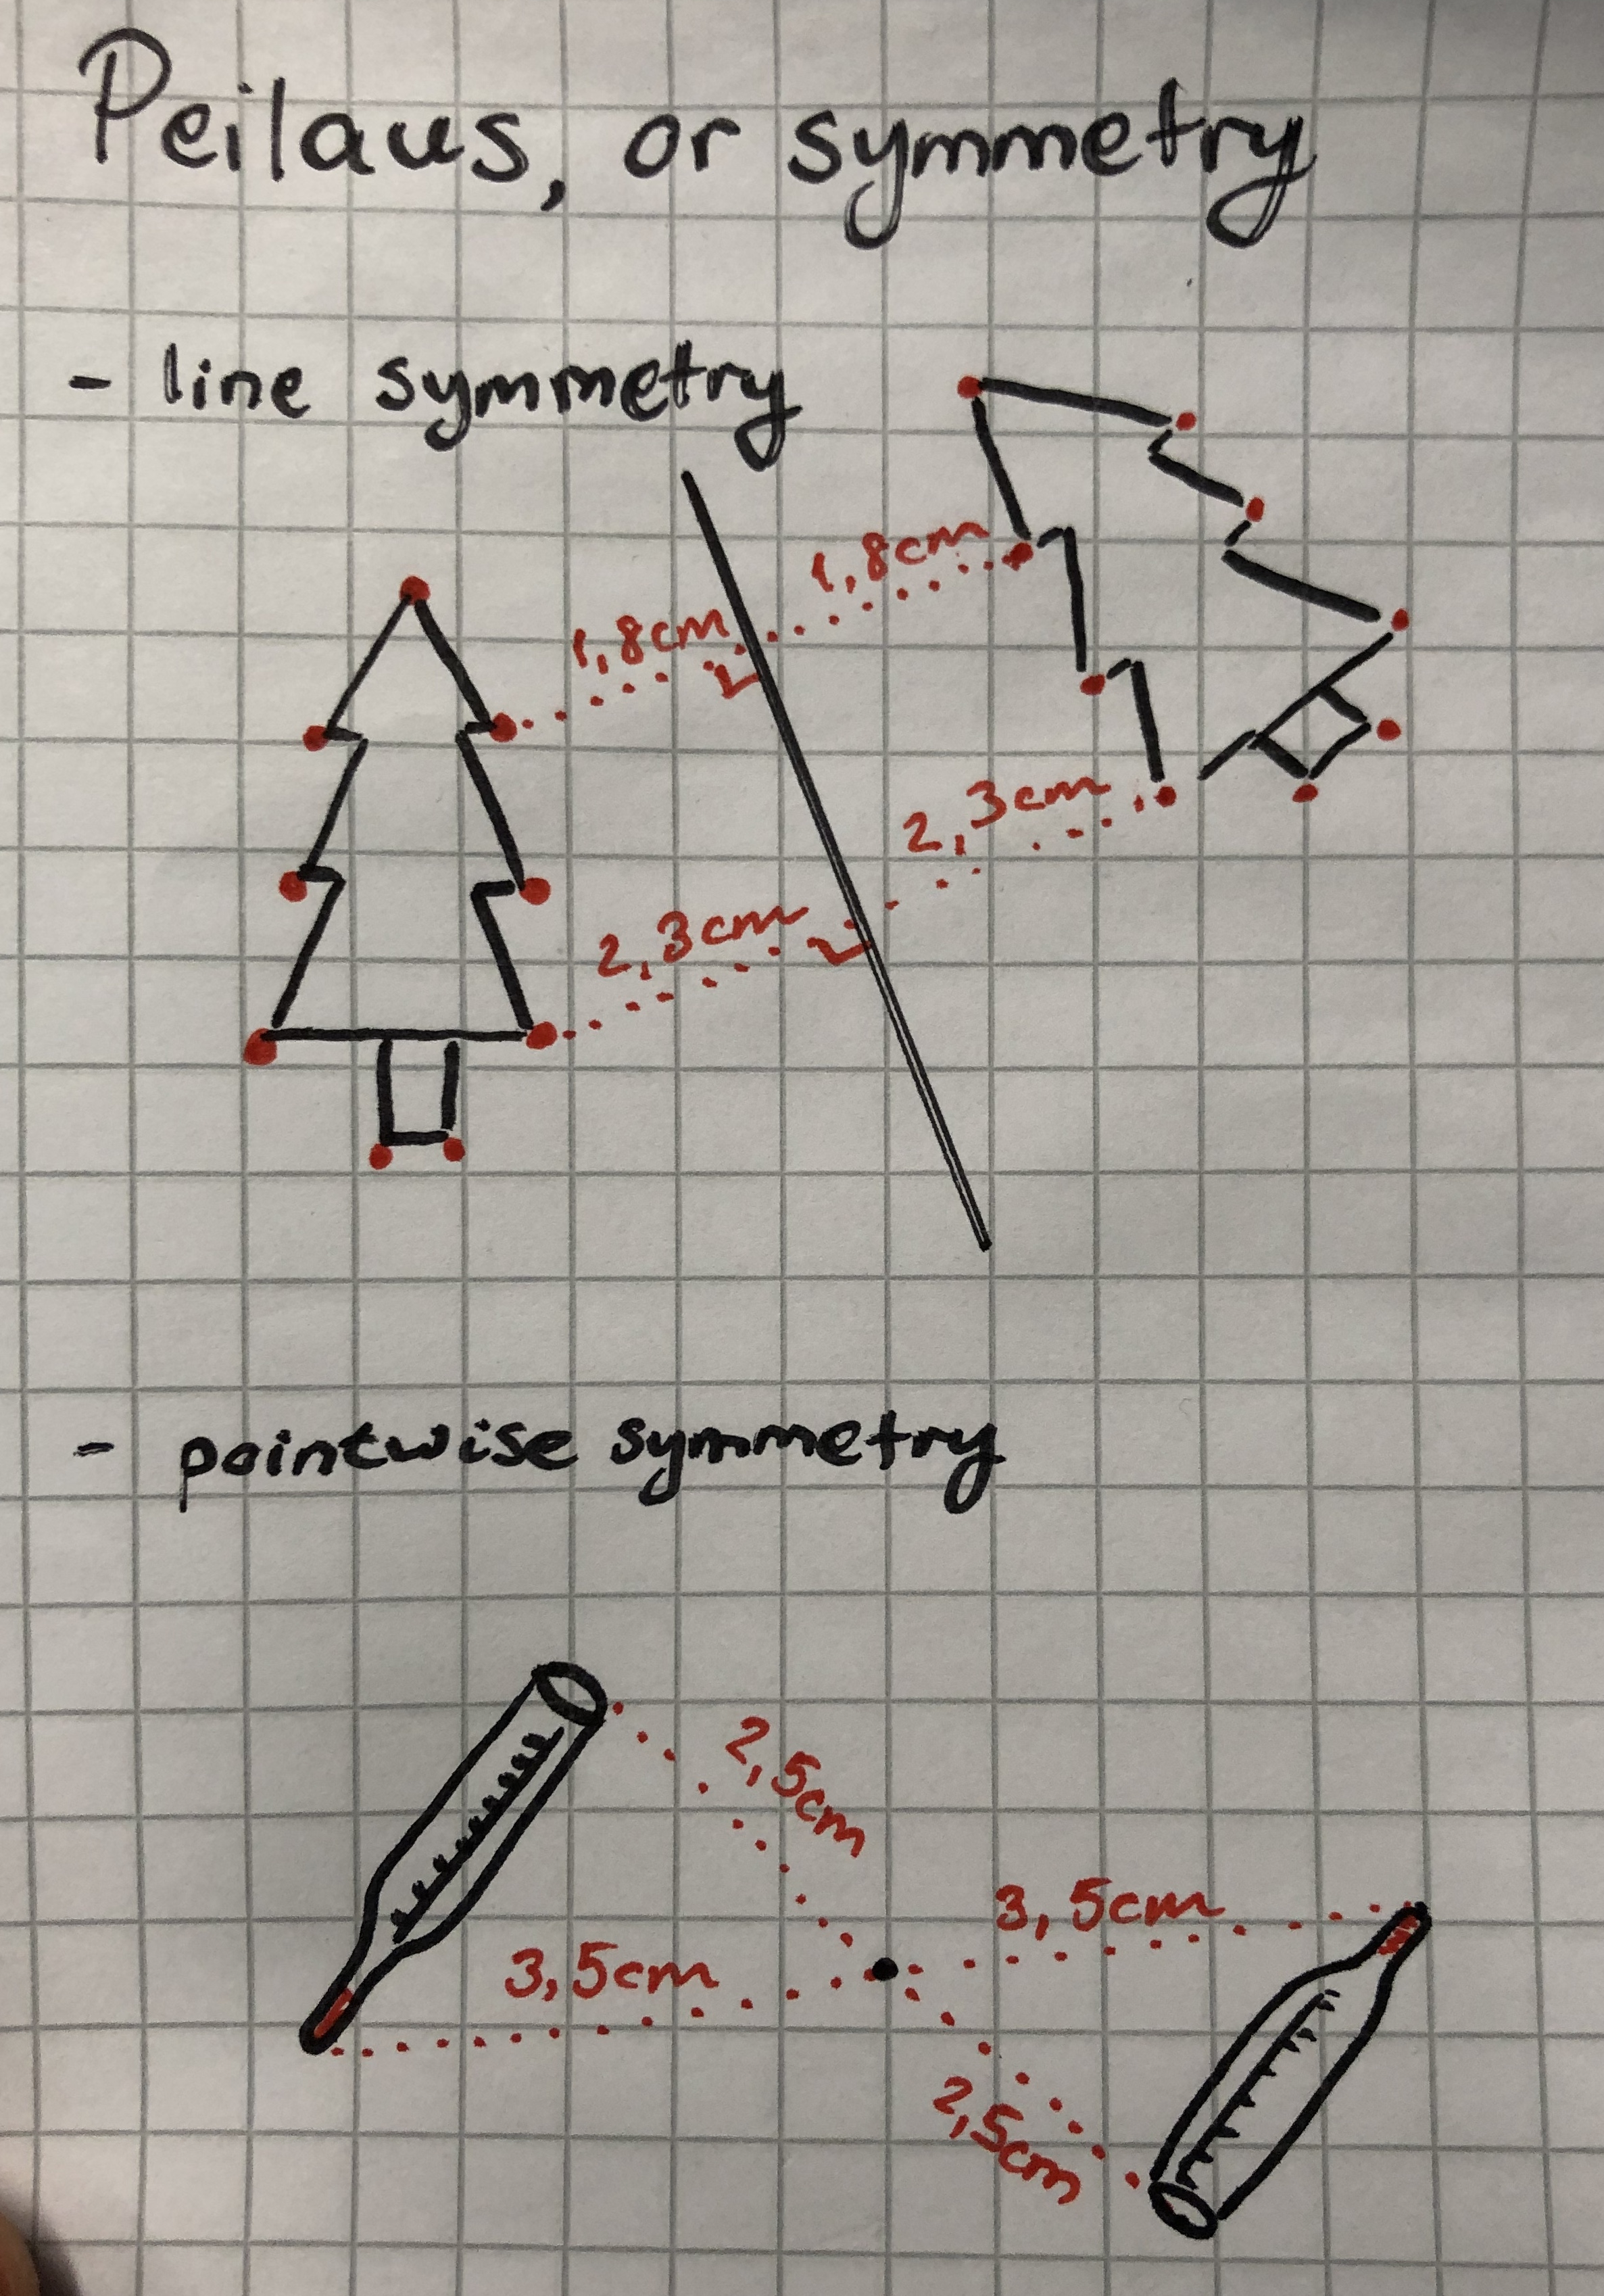 Peilaus, or symmetry
- line symmetry
1,8cm
1,8cm
2,3cm
2,3cm
- pointwise symmetry
2,5cm
3,5cm
3,5cm
2,5cm